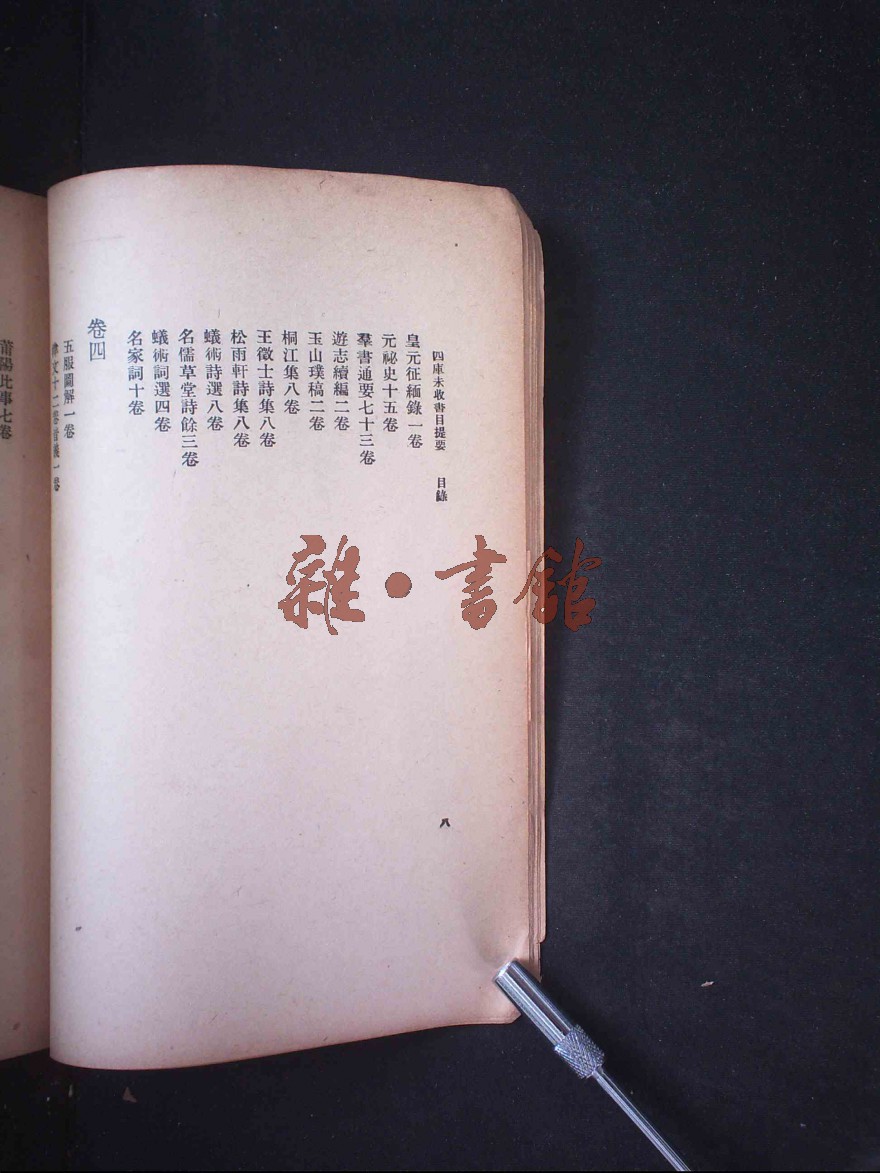 四庫未收書目提要 目錄
八
皇元征緬錄一卷
元祕史十五卷
羣書通要七十三卷
遊志續編二卷
玉山璞稿二卷
桐江集八卷
王徵士詩集八卷
松雨軒詩集八卷
蟻術詩選八卷
名儒草堂詩餘三卷
蟻術詞選四卷
名家詞十卷
卷四
五服圖解一卷
律文十二卷音義一卷
莆陽比事七卷
雜·書館